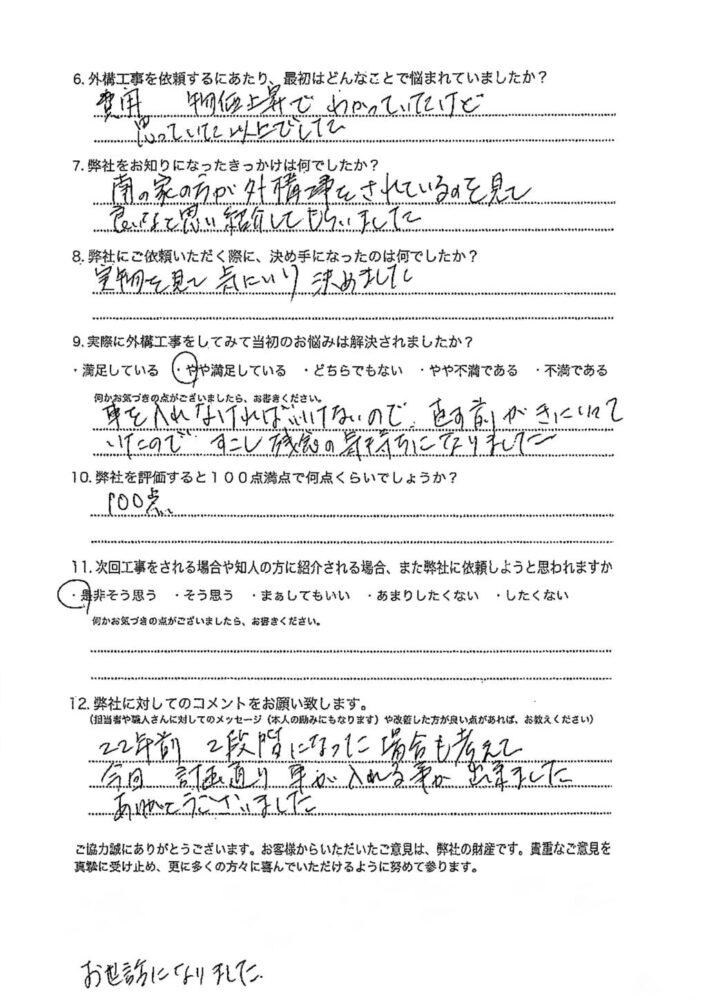 6. 外構工事を依頼するにあたり、最初はどんなことで悩まれていましたか？
費用　物価上昇で わかっていたけど
思っていた以上でした
7. 弊社をお知りになったきっかけは何でしたか？
南の家の方が外構工事をされているのを見て
良いなと思い紹介してもらいました
8. 弊社にご依頼いただく際に、決め手になったのは何でしたか？
実物を見て 気にいり 決めました
9. 実際に外構工事をしてみて当初のお悩みは解決されましたか？
・満足している ・やや満足している ・どちらでもない ・やや不満である ・不満である
何かお気づきの点がございましたら、お書きください。
車を入れなければいけないので、直す前がきにいって
いたので すこし残念の気持ちになりました
10. 弊社を評価すると１００点満点で何点くらいでしょうか？
100点
11. 次回工事をされる場合や知人の方に紹介される場合、また弊社に依頼しようと思われますか
・是非そう思う ・そう思う ・まぁしてもいい ・あまりしたくない ・したくない
何かお気づきの点がございましたら、お書きください。
12. 弊社に対してのコメントをお願い致します。
（担当者や職人さんに対してのメッセージ（本人の励みにもなります）や改善した方が良い点があれば、お教えください）
22年前 2段階になった場合も考えて
今回 計画通り 車が入れる事が 出来ました
ありがとうございました
ご協力誠にありがとうございます。お客様からいただいたご意見は、弊社の財産です。貴重なご意見を
真摯に受け止め、更に多くの方々に喜んでいただけるように努めて参ります。
お世話になりました。